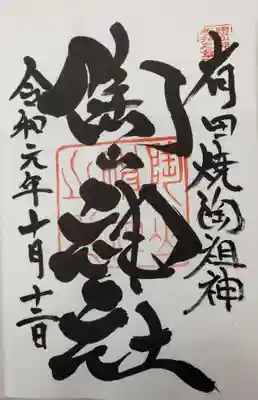 有田焼陶祖神
陶山神社
令和元年十月十二日